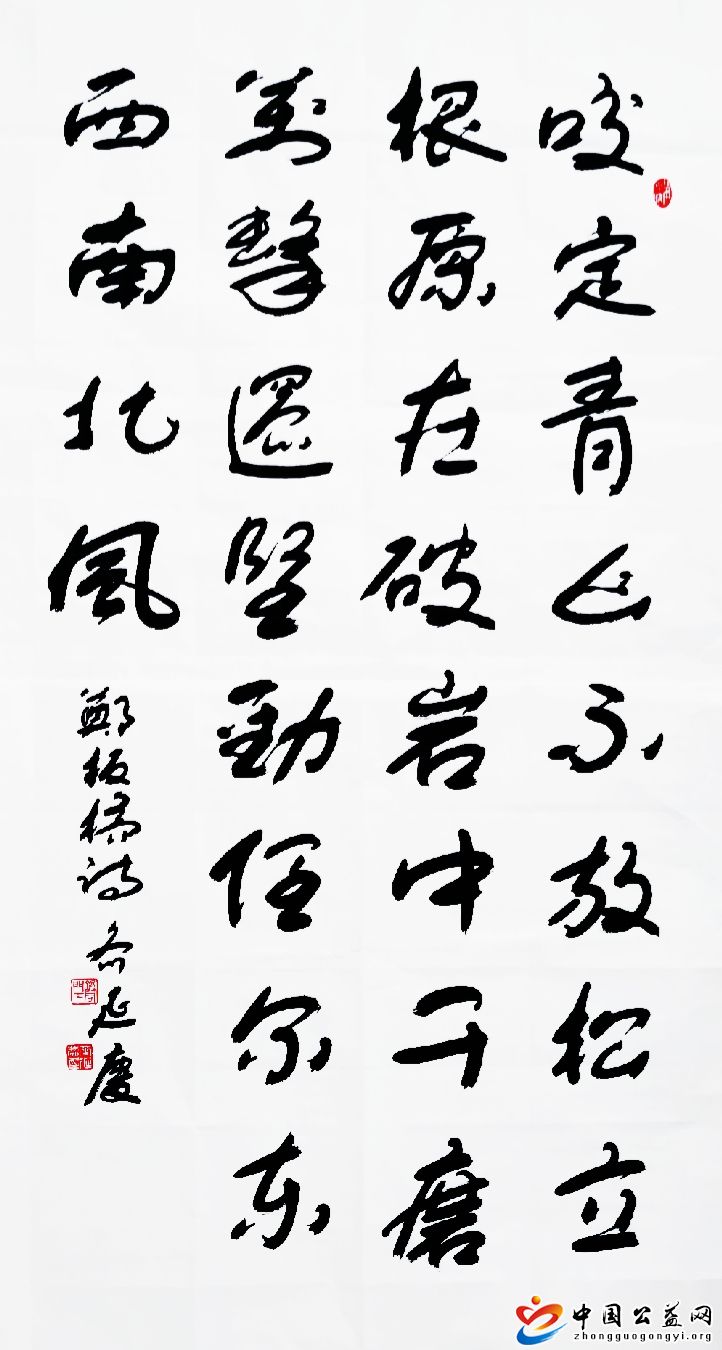 咬定青山不放松立
根原在破岩中千磨
萬擊還堅勁任尔东
西南北風
鄭板橋詩 俞延慶
中国公益网
zhongguogongyi.org